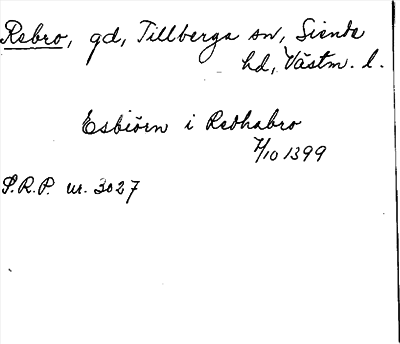 Rebro, gd, Tillberga sn, Siende
hd, Västm. l.
Esbiörn i Redhabro
7/10 1399
S.R.P. nr. 3027